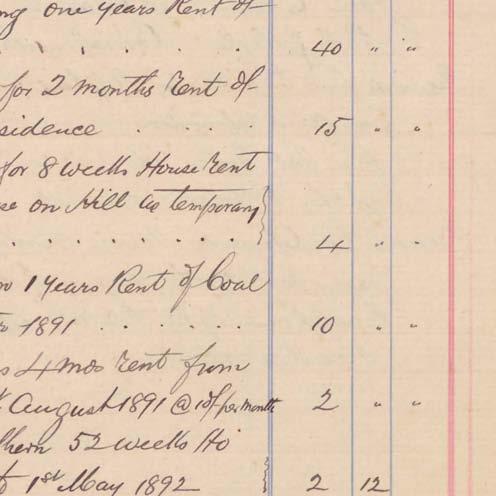 ng one years Rent of
. . . . . 40 " "
for 2 months Rent of
sidence . . . . 15 " "
for 8 weeks House rent
se on Hill as temporary
. . . . . . . 4 " "
1 years Rent of Coal
1891 . . . . . . 10 " "
s 4 mos rent from
August 1891 @ 10/- per month 2 " "
hern 52 weeks to
to 1st May 1892 2 12